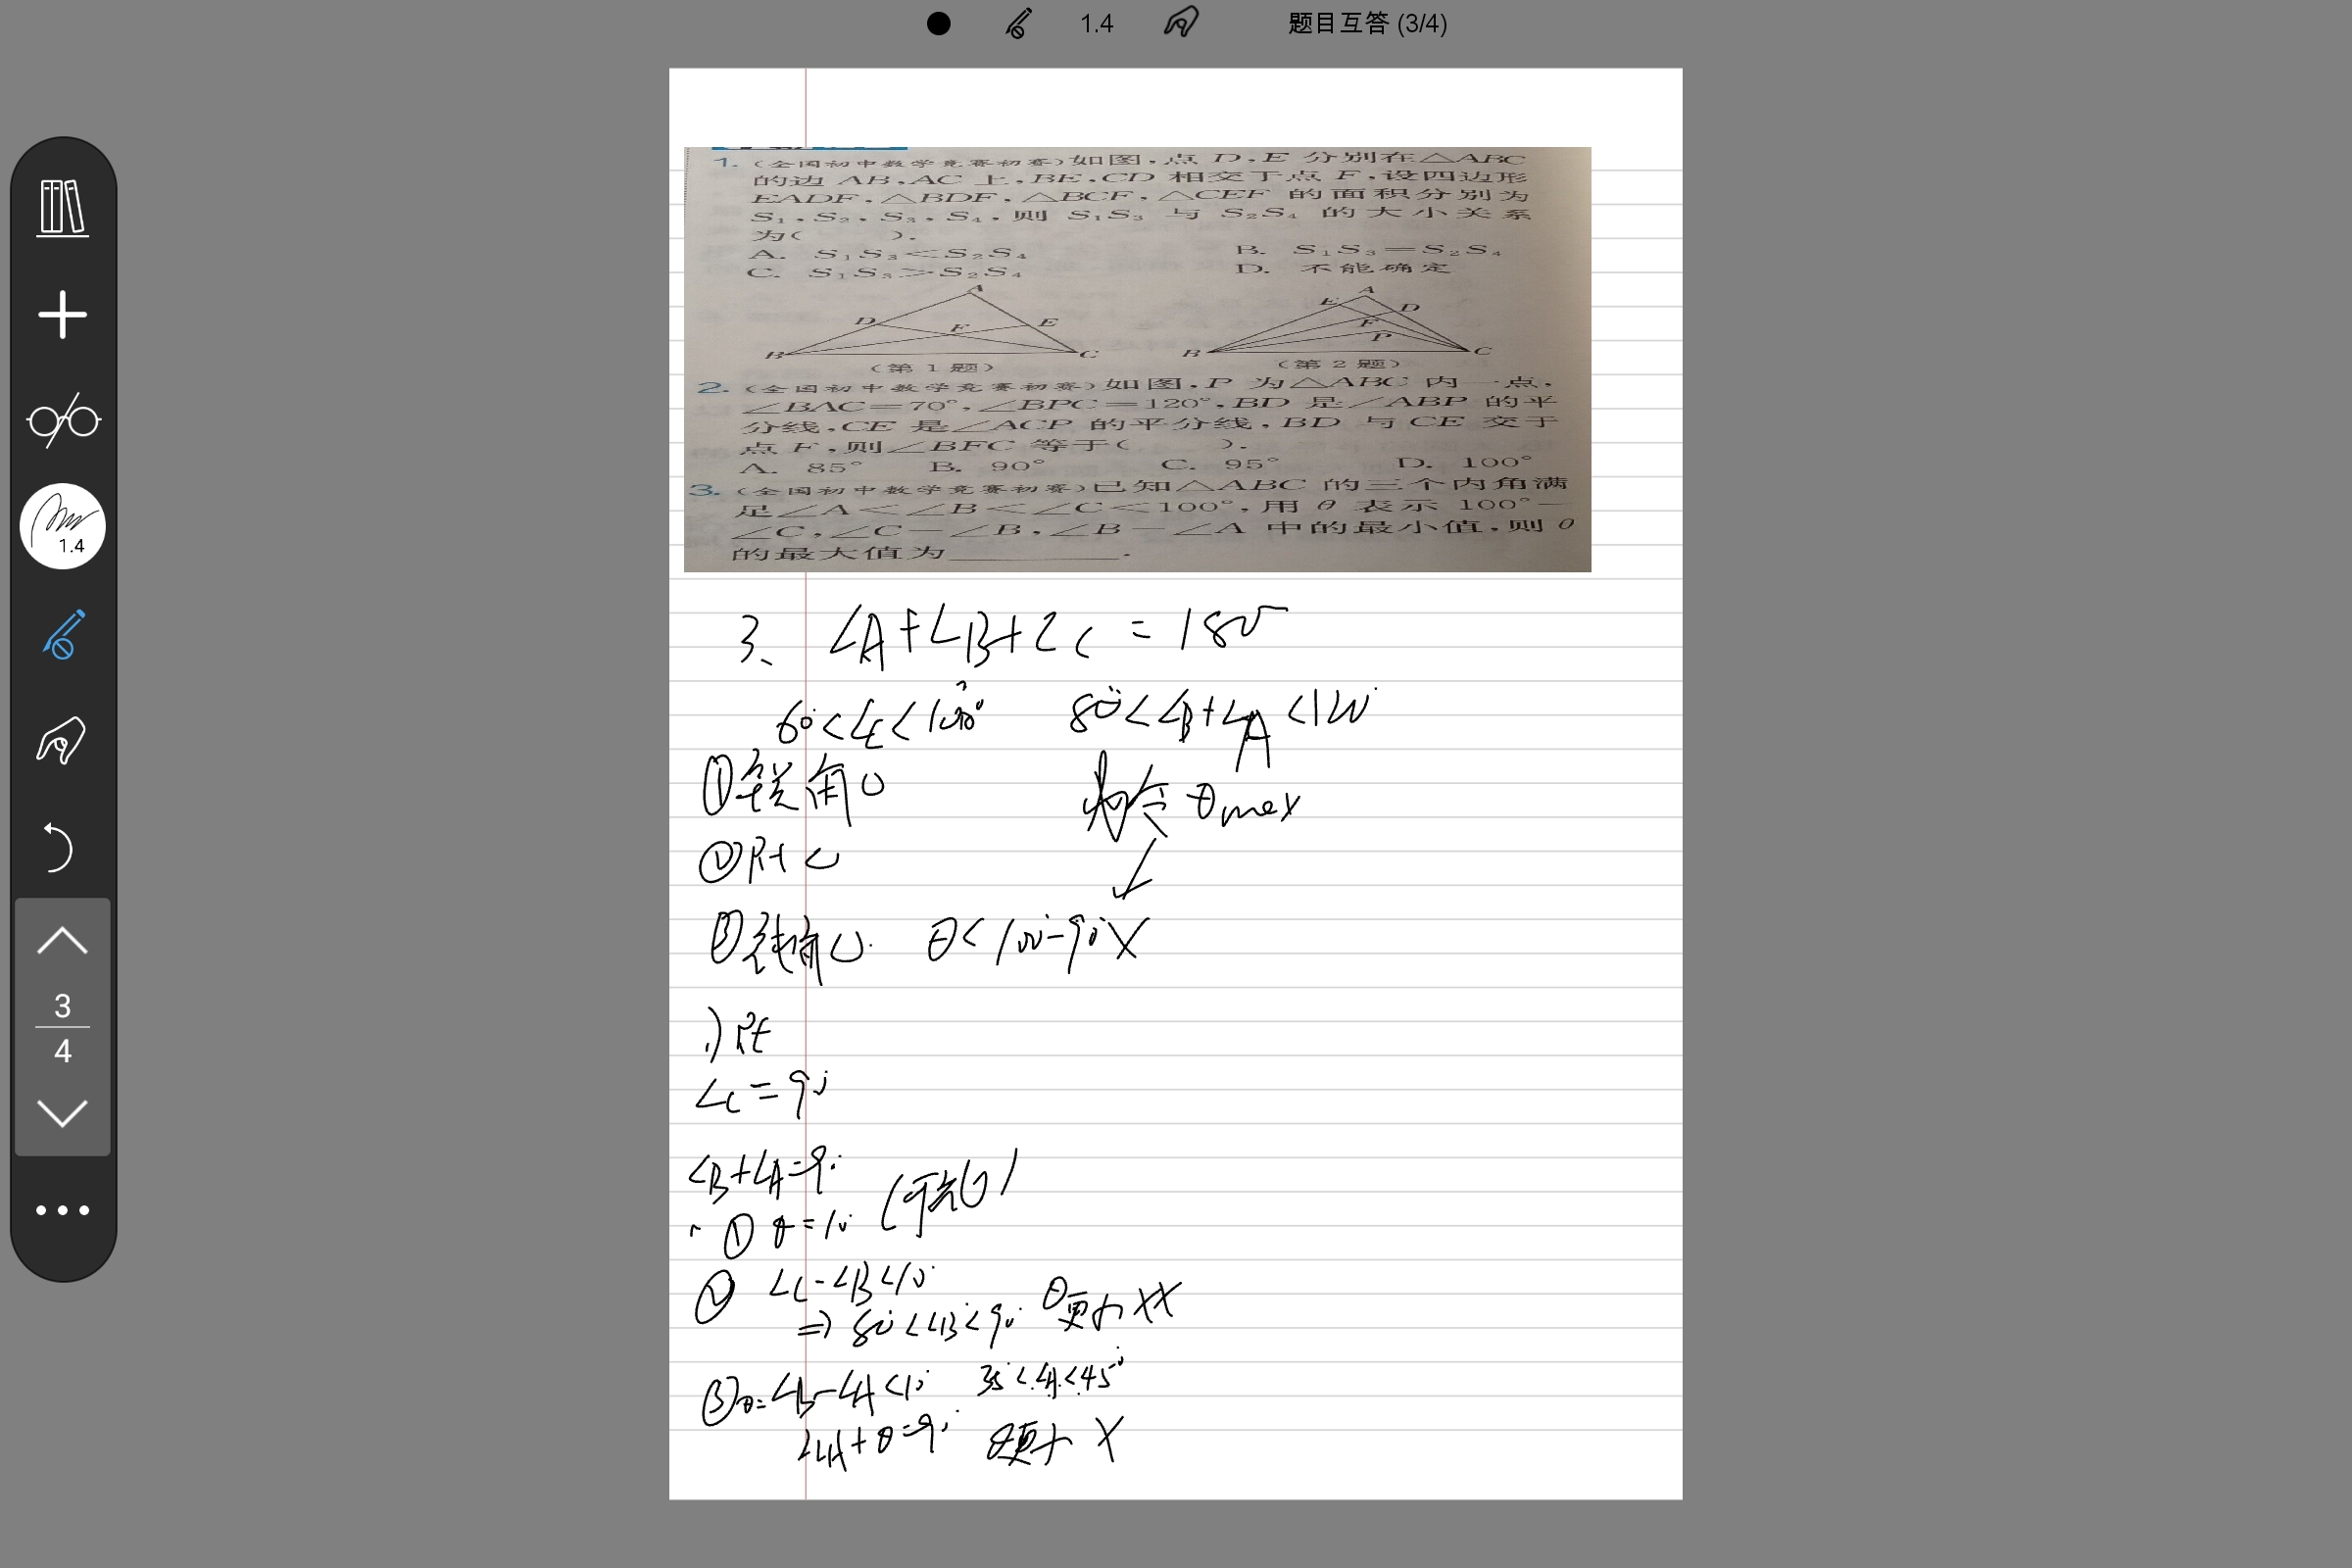 1.4 题目互答 (3/4)
1.4
3
4
1. (全国初中数学竞赛初赛)如图,点 D,E 分别在△ABC
的边 AB,AC 上,BE,CD 相交于点 F,设四边形
EADF,△BDF,△BCF,△CEF 的面积分别为
S₁,S₂,S₃,S₄,则 S₁S₃ 与 S₂S₄ 的大小关系
为( ).
A. S₁S₃<S₂S₄ B. S₁S₃=S₂S₄
C. S₁S₃>S₂S₄ D. 不能确定
A
D
F
E
B
C
(第1题)
A
E
D
F
P
B
C
(第2题)
2. (全国初中数学竞赛初赛)如图,P 为△ABC 内一点,
∠BAC=70°,∠BPC=120°,BD 是∠ABP 的平
分线,CE 是∠ACP 的平分线,BD 与 CE 交于
点 F,则∠BFC 等于( ).
A. 85° B. 90° C. 95° D. 100°
3. (全国初中数学竞赛初赛)已知△ABC 的三个内角满
足∠A<∠B<∠C<100°,用 θ 表示 100°-
∠C,∠C-∠B,∠B-∠A 中的最小值,则 θ
的最大值为________.
3、 ∠A+∠B+∠C=180°
60°<∠C<100° 80°<∠B+∠A<120°
①锐角
θmax
②Rt
③钝角 θ<100°-90° X
Rt
∠C=90°
∠B+∠A=90°
① θ=10°
② ∠C-∠B<10°
⇒ 80°<∠B<90° θ更小 XX
③ θ=∠B-∠A<10° 35°<∠A<45°
2∠A+θ=90° θ更小 X